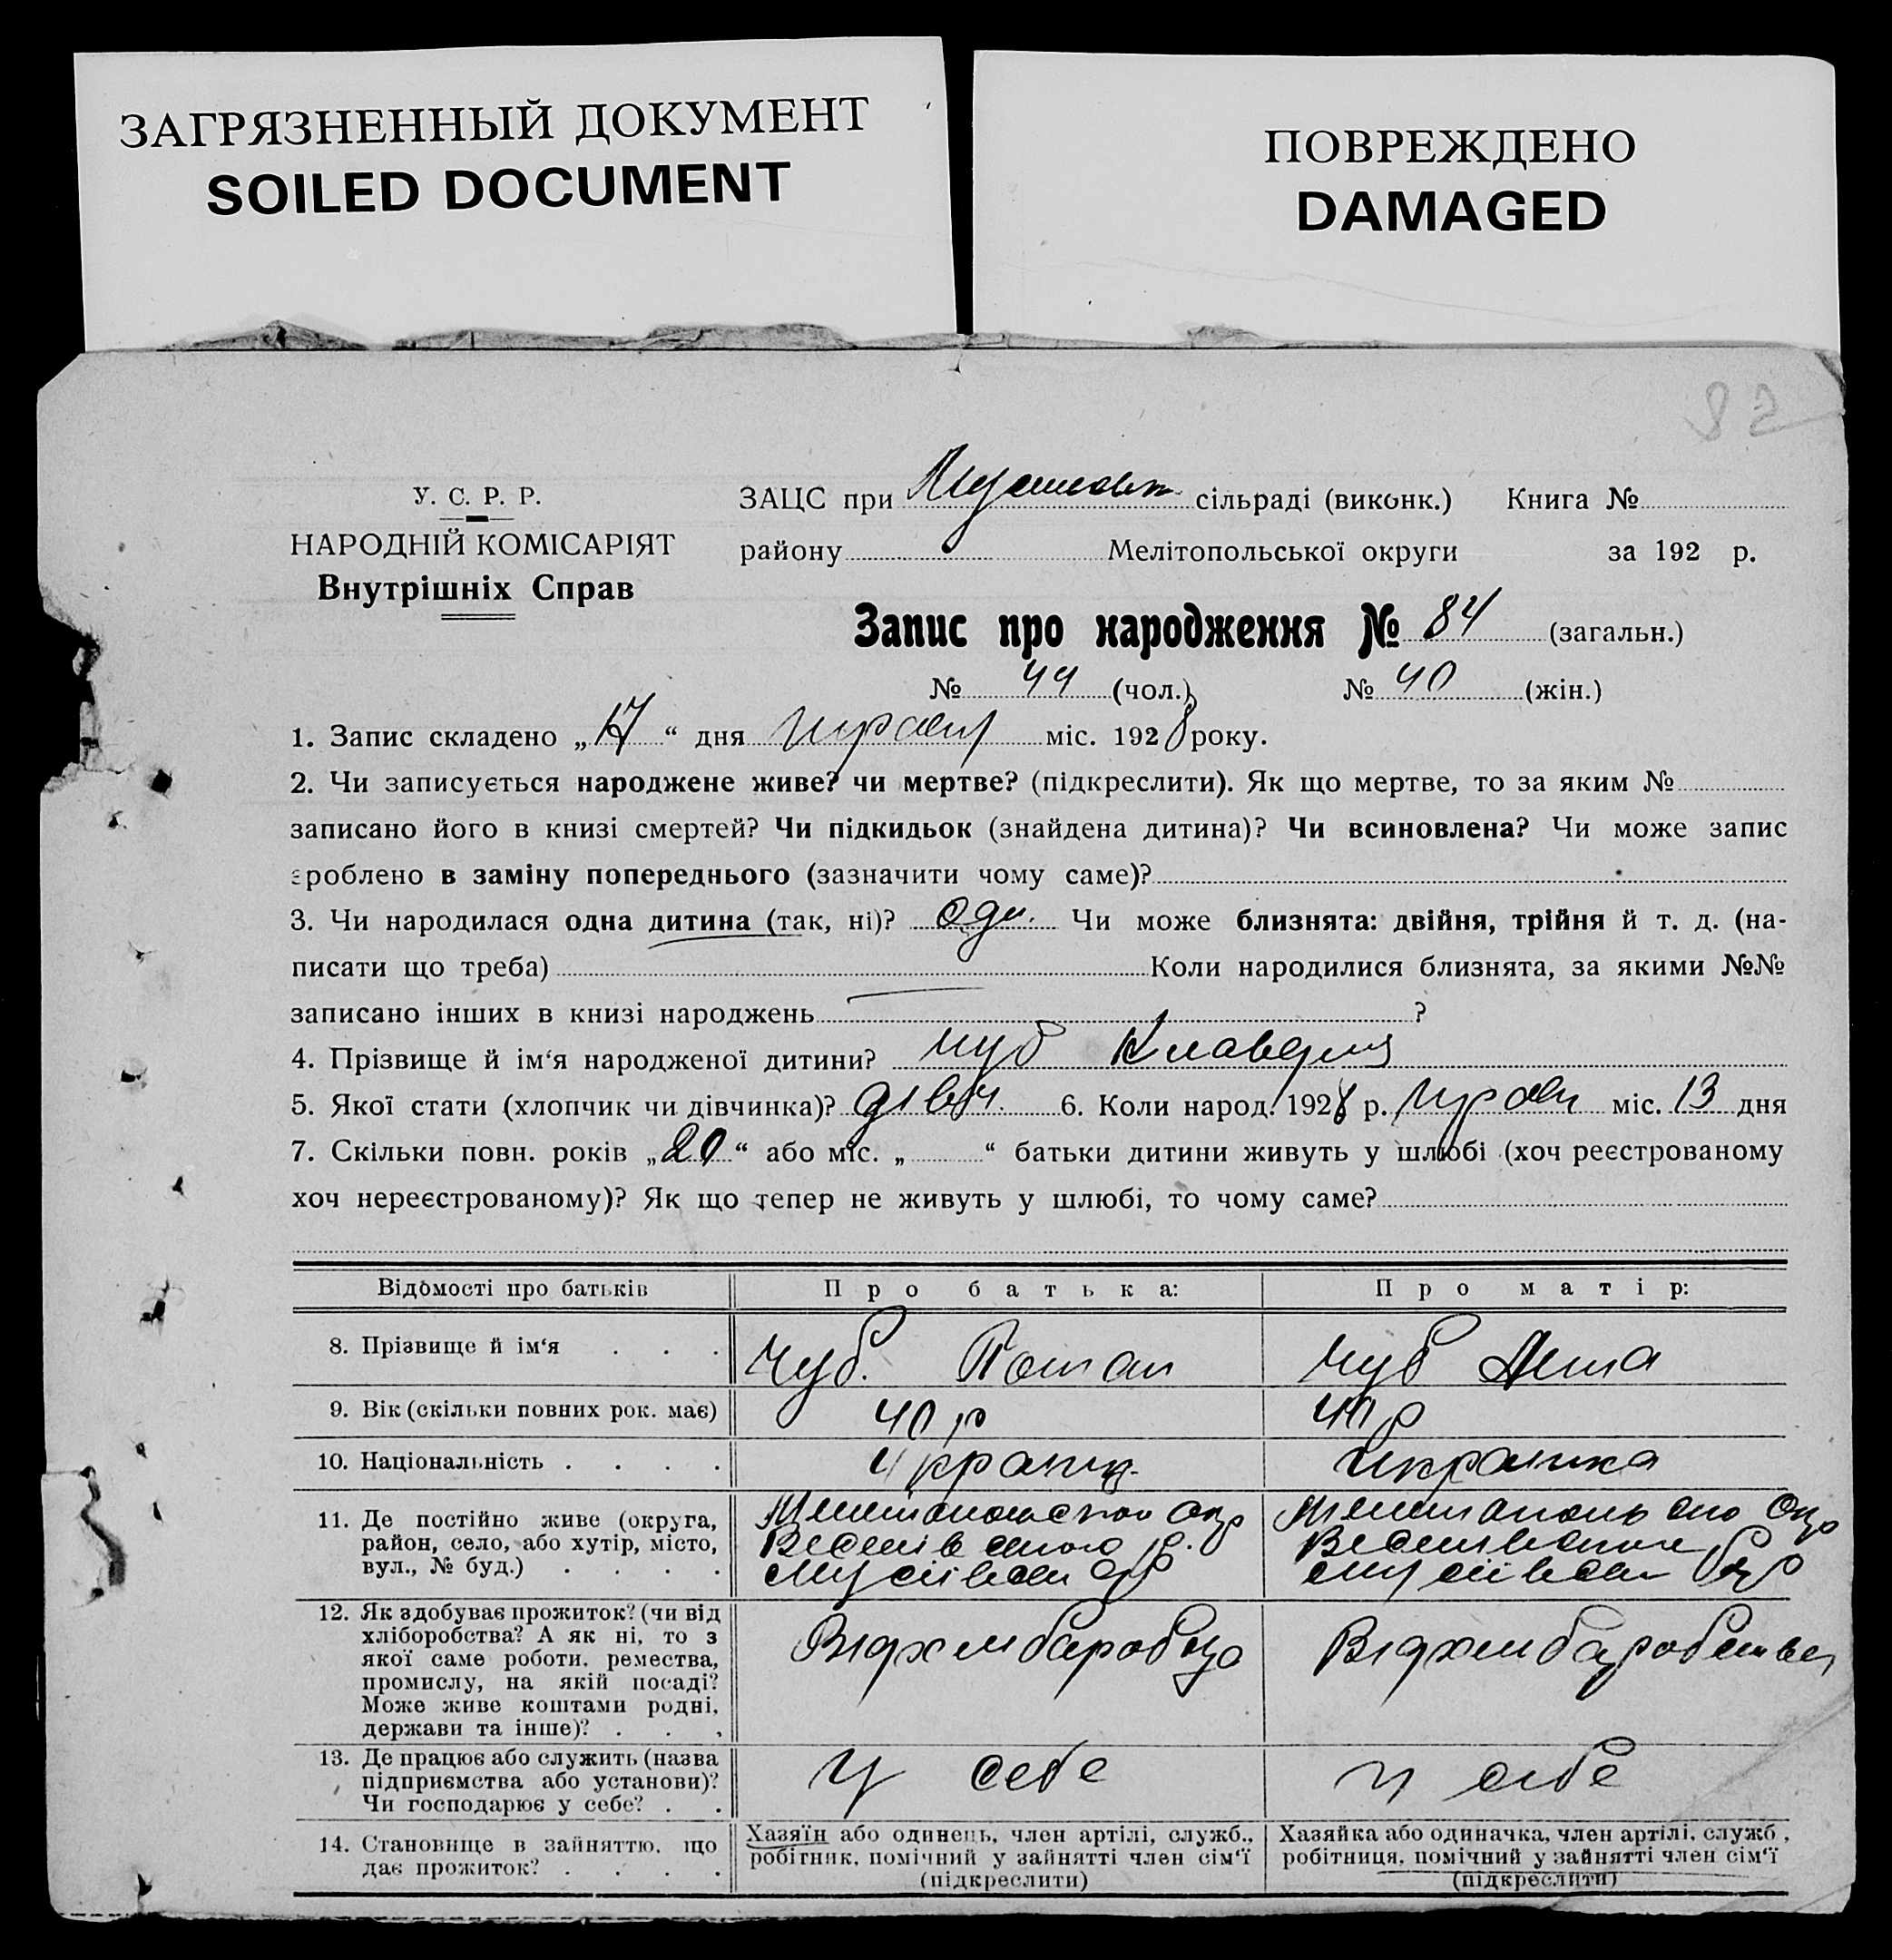 ЗАГРЯЗНЕННЫЙ ДОКУМЕНТ
SOILED DOCUMENT
ПОВРЕЖДЕНО
DAMAGED
82
У. С. Р. Р.
НАРОДНІЙ КОМІСАРІЯТ
Внутрішніх Справ
ЗАЦС при сільраді (виконк.) Книга №
району Мелітопольської округи за 192 р.
Запис про народження № 84 (загальн.)
№ 44 (чол.) № 40 (жін.)
1. Запис складено „17“ дня міс. 1928 року.
2. Чи записується народжене живе? чи мертве? (підкреслити). Як що мертве, то за яким №
записано його в книзі смертей? Чи підкидьок (знайдена дитина)? Чи всиновлена? Чи може запис
зроблено в заміну попереднього (зазначити чому саме)?
3. Чи народилася одна дитина (так, ні)? одн. Чи може близнята: двійня, трійня й т. д. (на-
писати що треба) Коли народилися близнята, за якими №№
записано інших в книзі народжень ?
4. Прізвище й ім‘я народженої дитини? Чуб Клавдия
5. Якої стати (хлопчик чи дівчинка)? дівч. 6. Коли народ. 1928 р. міс. 13 дня
7. Скільки повн. років „20“ або міс. „ “ батьки дитини живуть у шлюбі (хоч реєстрованому
хоч нереєстрованому)? Як що тепер не живуть у шлюбі, то чому саме?
Відомості про батьків Про батька: Про матір:
8. Прізвище й ім‘я . . . Чуб. Потап Чуб Анна
9. Вік (скільки повних рок. має) 40 р 40 р
10. Національність . . . . Украинц. Украинка
11. Де постійно живе (округа,
район, село, або хутір, місто,
вул., № буд.) . . . .
12. Як здобуває прожиток? (чи від
хліборобства? А як ні, то з
якої саме роботи, ремества,
промислу, на якій посаді?
Може живе коштами родні,
держави та інше)? . . .
Від хліборобства
13. Де працює або служить (назва
підприємства або установи)?
Чи господарює у себе? . .
У себе
У себе
14. Становище в зайняттю, що
дає прожиток? . . . .
Хазяїн або одинець, член артілі, служб.,
робітник, помічний у зайнятті член сім‘ї
(підкреслити)
Хазяйка або одиначка, член артілі, служб.,
робітниця, помічний у зайнятті член сім‘ї
(підкреслити)